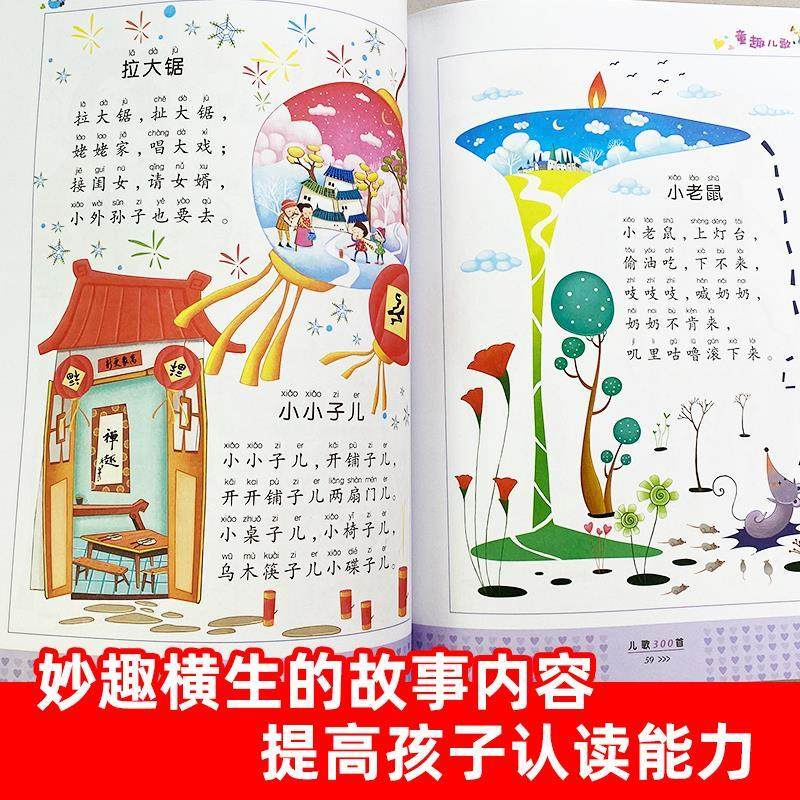 lā dà jù
拉大锯
lā dà jù chě dà jù
拉大锯，扯大锯，
lǎo lao jiā chàng dà xì
姥姥家，唱大戏；
jiē guī nǚ qǐng nǚ xu
接闺女，请女婿，
xiǎo wài sūn zi yě yào qù
小外孙子也要去。
福
福
禅趣
xiǎo xiǎo zi er
小小子儿
xiǎo xiǎo zi er kāi pù zi er
小小子儿，开铺子儿，
kāi kai pù zi er liǎng shàn mén er
开开铺子儿两扇门儿。
xiǎo zhuō zi er xiǎo yǐ zi er
小桌子儿，小椅子儿，
wū mù kuài zi er xiǎo dié zi er
乌木筷子儿小碟子儿。
童趣儿歌
xiǎo lǎo shǔ
小老鼠
xiǎo lǎo shǔ shàng dēng tái
小老鼠，上灯台，
tōu yóu chī xià bù lái
偷油吃，下不来，
zhī zhī zhī hǎn nǎi nai
吱吱吱，喊奶奶，
nǎi nai bù kěn lái
奶奶不肯来，
jī li gū lū gǔn xià lái
叽里咕噜滚下来。
儿歌300首
59 >>>
妙趣横生的故事内容
提高孩子认读能力